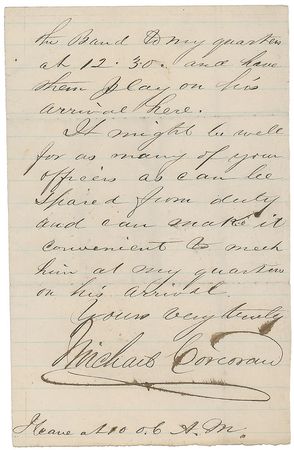 the Band to my quarters
at 12.30. and have
them play on his
arrival here.
It might be well
for as many of your
officers as can be
spared from duty
and can make it
convenient to meet
him at my quarters
on his arrival.
Yours very truly
Michael Corcoran
at 10 A.M.